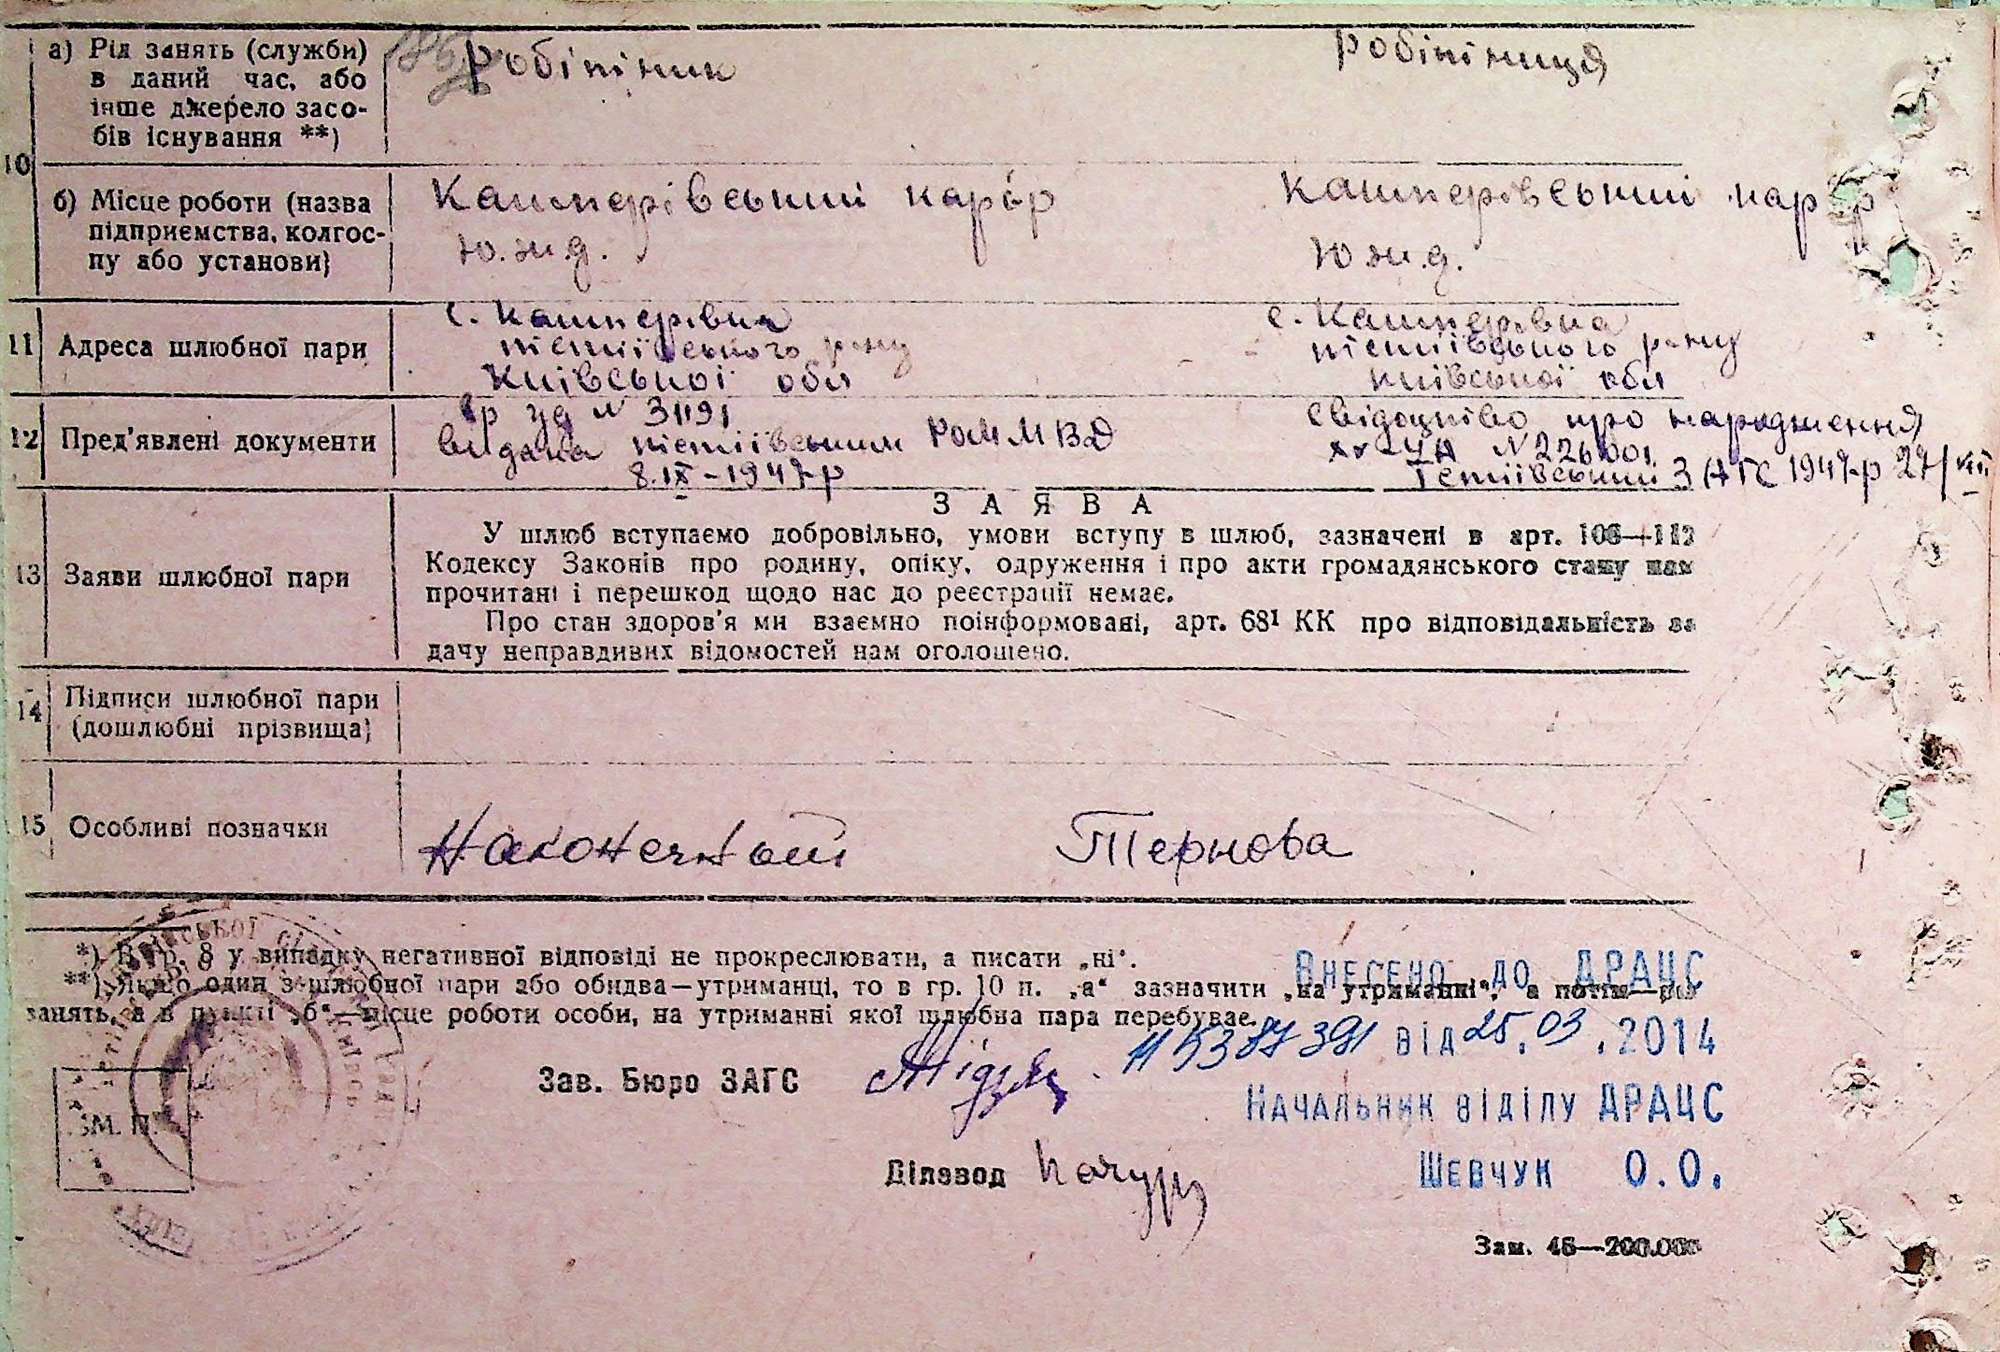 10
а) Рід занять (служби)
в даний час, або
інше джерело засо-
бів існування **)
робітник
робітниця
б) Місце роботи (назва
підприємства, колгос-
пу або установи)
Кашперівський карєр
Ю.ж.д.
Кашперівський карєр
Ю ж.д.
11 Адреса шлюбної пари
с. Кашперівка
тетіївського р-ну
Київської обл
с. Кашперівка
тетіївського р-ну
київської обл
12 Пред'явлені документи
вр уд N 31191
видана тетіївським РОММВД
8.IX-1947р
свідоцтво про народження
N 226001
Тетіївський ЗАГС 1947р 27/VIII
13 Заяви шлюбної пари
ЗАЯВА
У шлюб вступаємо добровільно, умови вступу в шлюб, зазначені в арт. 106—112
Кодексу Законів про родину, опіку, одруження і про акти громадянського стану нам
прочитані і перешкод щодо нас до реєстрації немає.
Про стан здоров'я ми взаємно поінформовані, арт. 68¹ КК про відповідальність за
дачу неправдивих відомостей нам оголошено.
14 Підписи шлюбної пари
(дошлюбні прізвища)
15 Особливі позначки
Наконечный
Тернова
*) В гр. 8 у випадку негативної відповіді не прокреслювати, а писати „ні".
**) Якщо один з шлюбної пари або обидва—утриманці, то в гр. 10 п. „а" зазначити „на утриманні", а потім—рід
занять, а в пункті „б"—місце роботи особи, на утриманні якої шлюбна пара перебуває.
Внесено до ДРАЦС
115387391 від 25.03.2014
Начальник відділу ДРАЦС
Шевчук О.О.
Зав. Бюро ЗАГС
М. П.
Діловод
Зам. 46—200.000